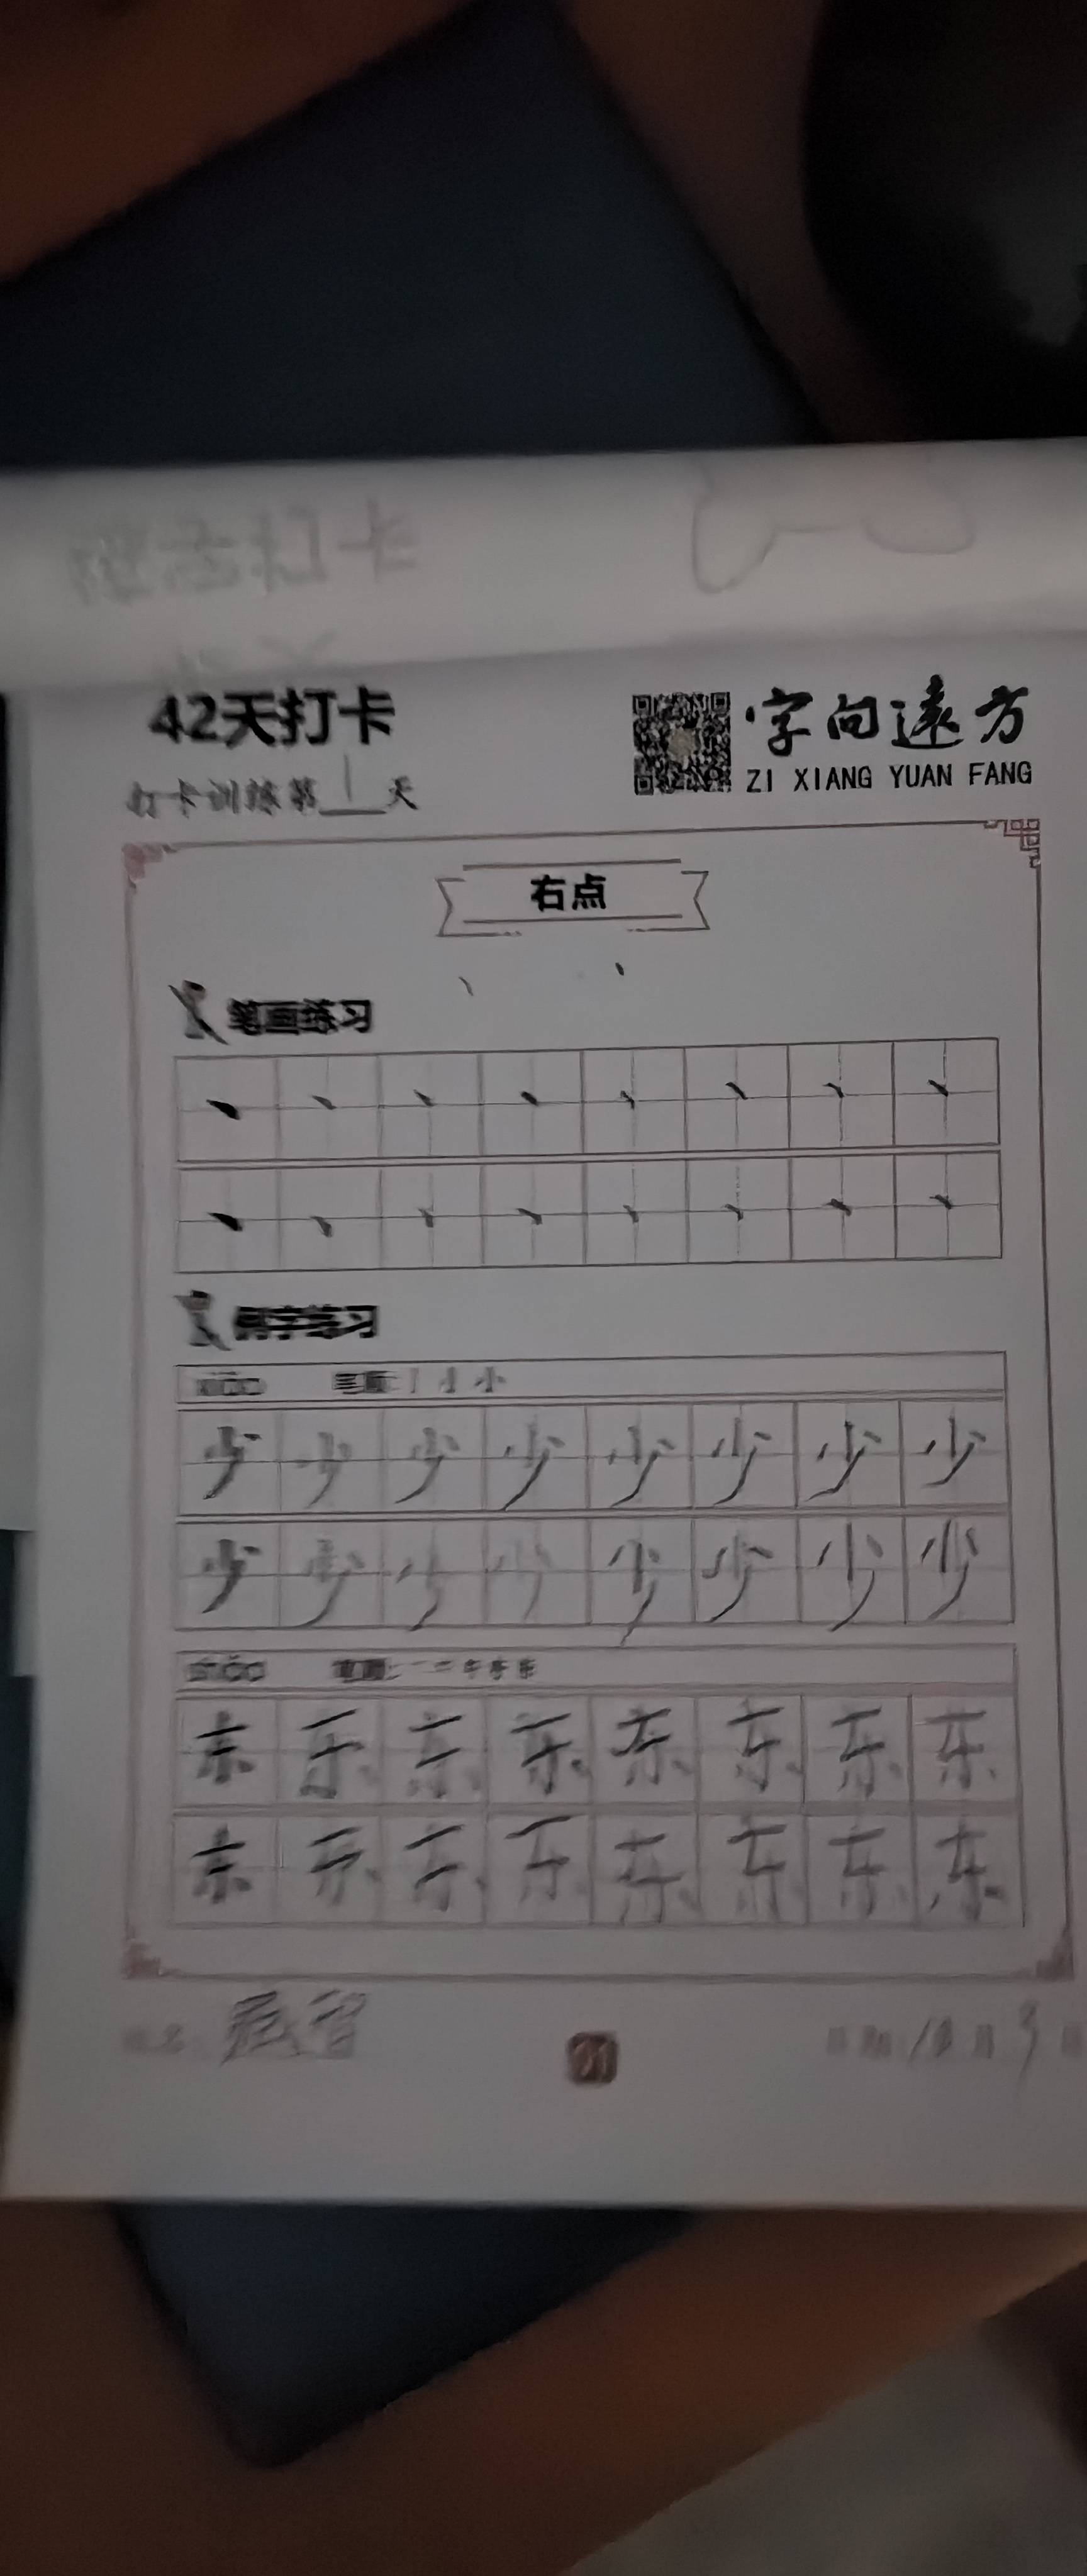 42天打卡
字向远方
打卡训练第1天
ZI XIANG YUAN FANG
右点
笔画练习
例字练习
笔顺:丨 小 小
少少少少少少少少
少少少少少少少少
东东东东东东东东
东东东东东东东东
01